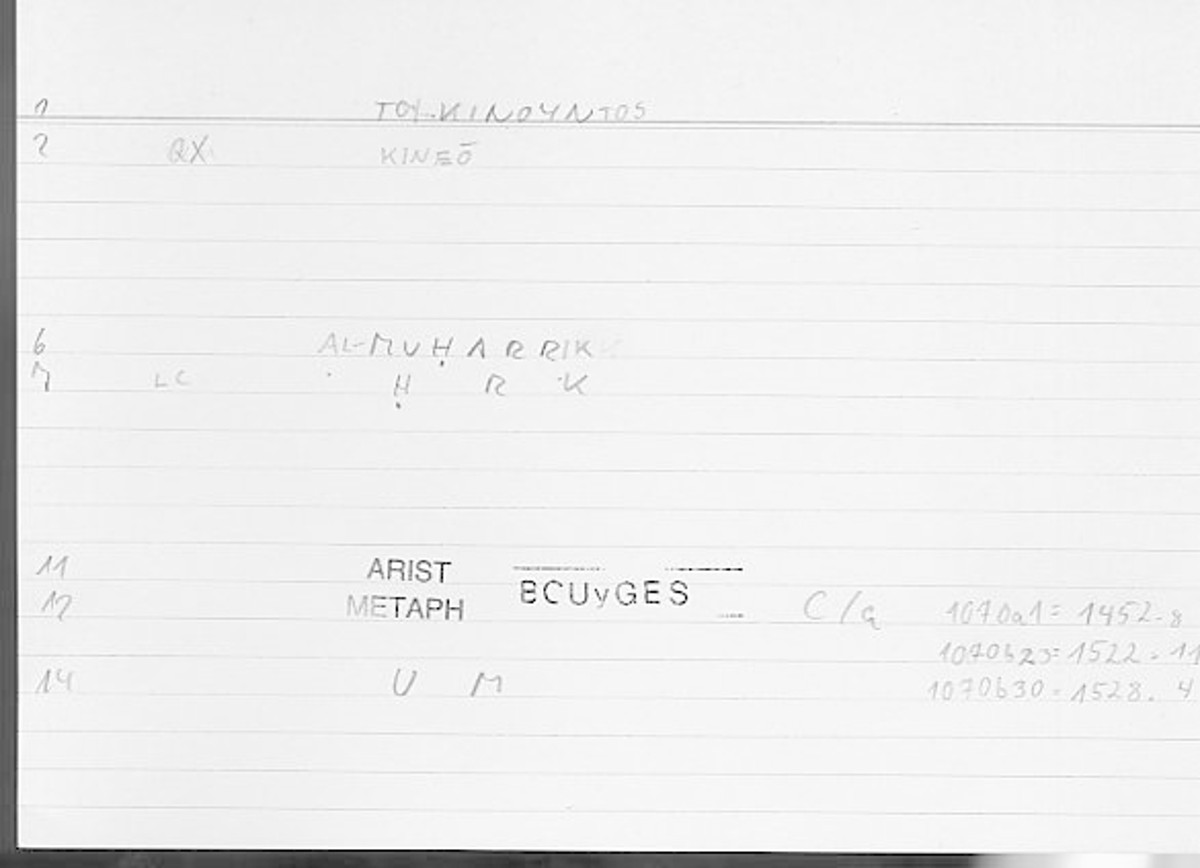 1 TOY KINOYNTOS
2 QX KINEŌ
6 AL-MUḤARRIK
7 LC Ḥ R K
11 ARIST
BCUyGES
12 METAPH C/a 1070a1 = 1452.8
1070b25 = 1522.11
14 U M 1070b30 = 1528.4